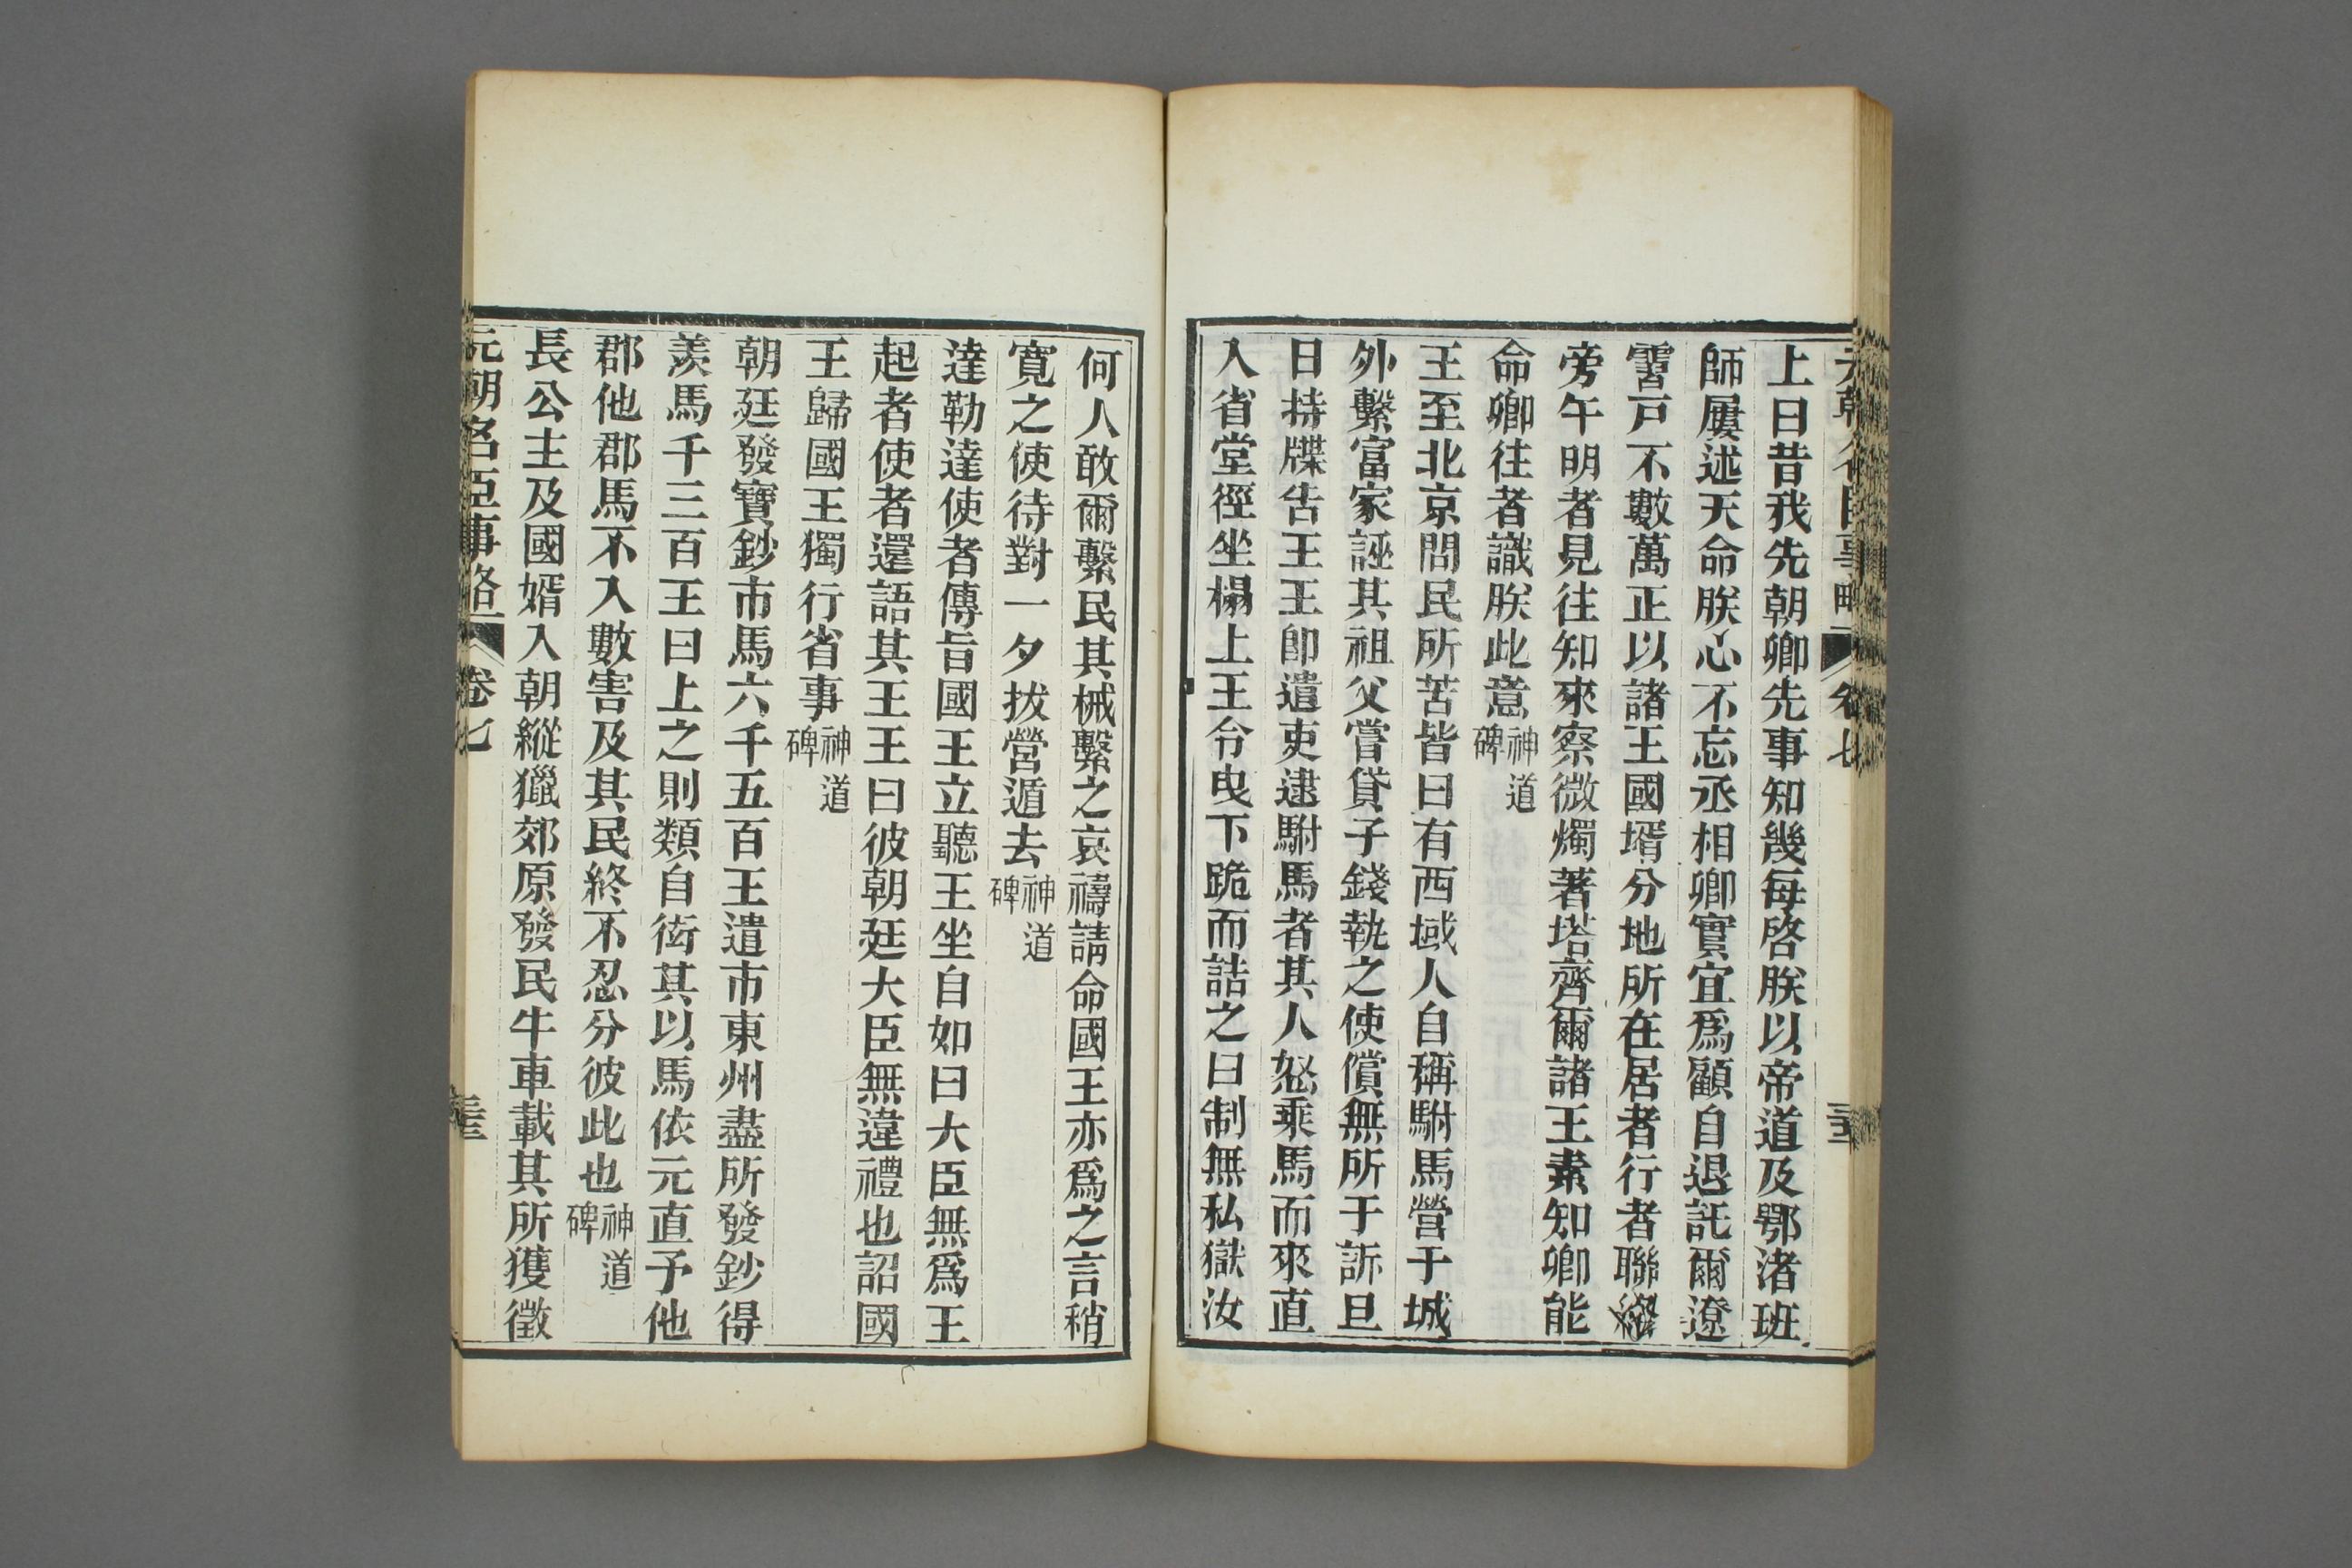 上曰昔我先朝卿先事知幾每啓朕以帝道及鄂渚班
師屢述天命朕心不忘丞相卿實宜爲顧自退託爾遼
霫戸不數萬正以諸王國壻分地所在居者行者聯
旁午明者見往知來察微燭著塔齊爾諸王素知卿能
命卿往者識朕此意神道碑
王至北京問民所苦皆曰有西域人自稱駙馬營于城
外繫富家誣其祖父嘗貸子錢執之使償無所于訴旦
日持牒告王王卽遣吏逮駙馬者其人怒乘馬而來直
入省堂徑坐榻上王令曳下跪而詰之曰制無私獄汝
何人敢爾繫民其械繫之哀禱請命國王亦爲之言稍
寬之使待對一夕拔營遁去神道碑
達勒達使者傳旨國王立聽王坐自如曰大臣無爲王
起者使者還語其王王曰彼朝廷大臣無違禮也詔國
王歸國王獨行省事神道碑
朝廷發寶鈔市馬六千五百王遣市東州盡所發鈔得
羨馬千三百王曰上之則類自衒其以馬依元直予他
郡他郡馬不入數害及其民終不忍分彼此也神道碑
長公主及國婿入朝縱獵郊原發民牛車載其所獲徵
元朝名臣事略 卷七